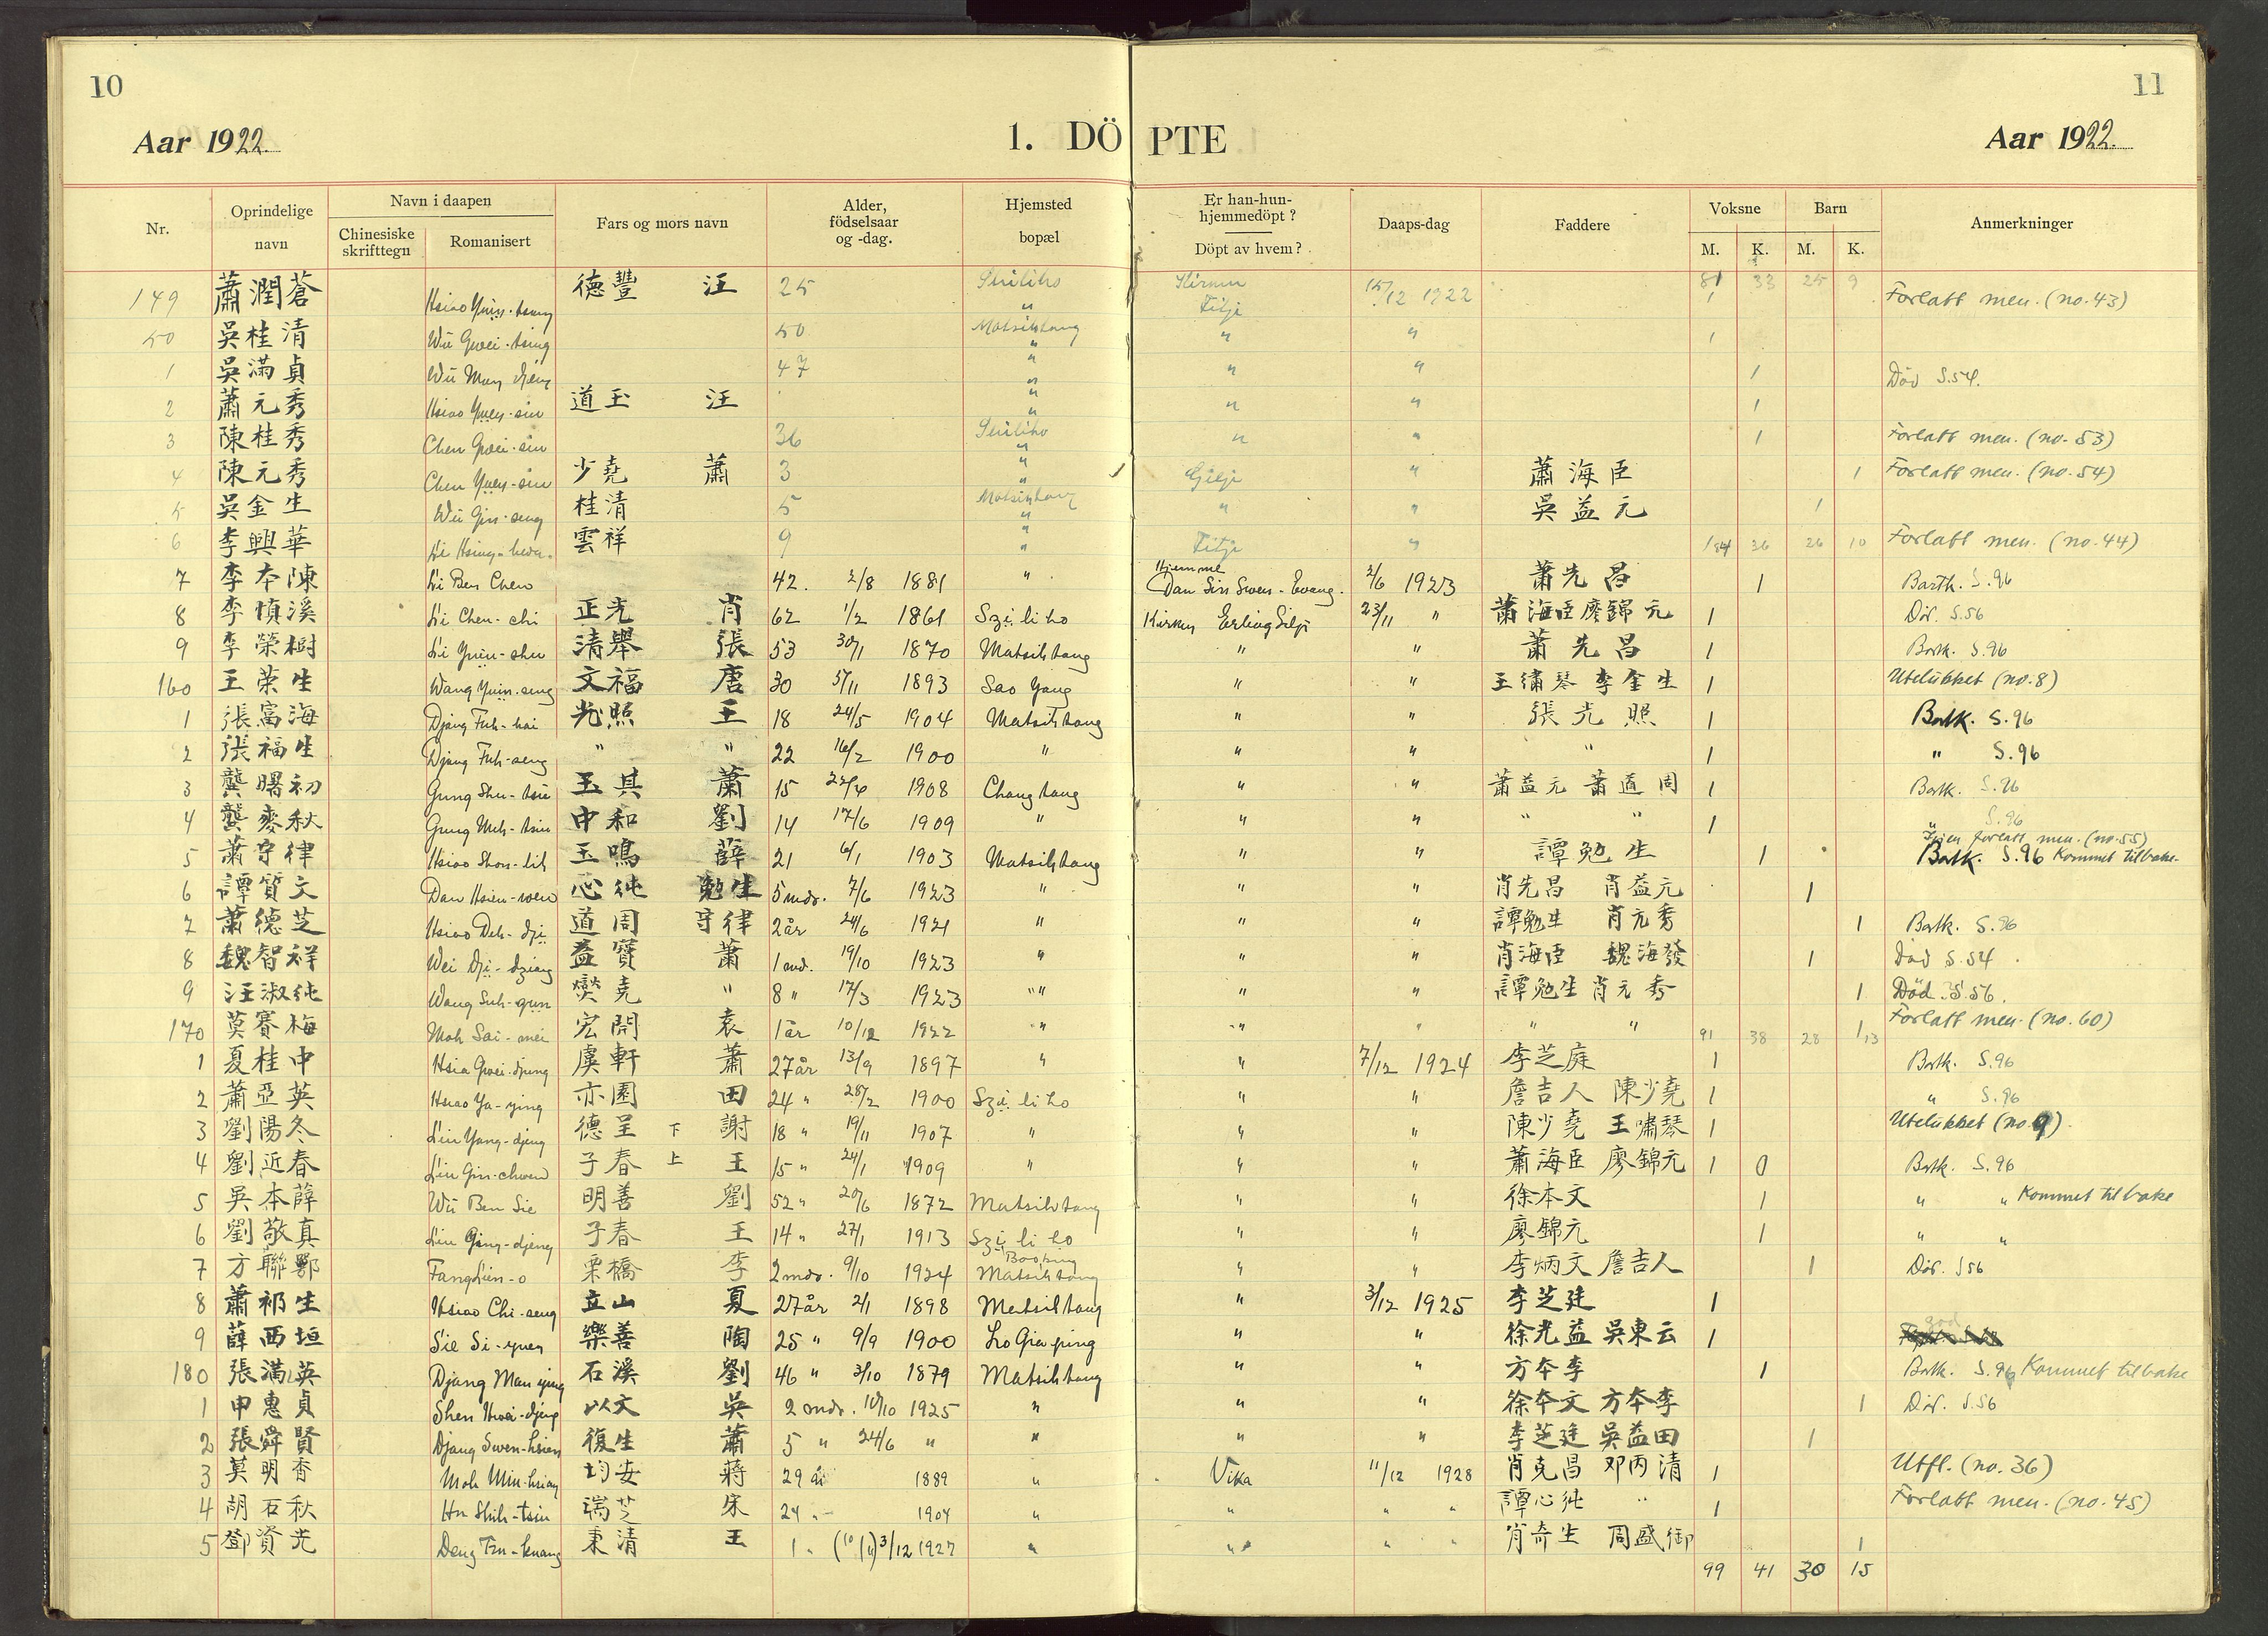 10
11
Aar 1922.
1. DÖPTE
Aar 1922.
Nr.
Oprindelige navn
Navn i daapen
Chinesiske skrifttegn
Romanisert
Fars og mors navn
Alder, födselsaar og -dag.
Hjemsted bopæl
Er han-hun-hjemmedöpt?
Döpt av hvem?
Daaps-dag
Faddere
Voksne
M. K.
Barn
M. K.
Anmerkninger
81 33 25 9
149 蕭潤蒼 Hsiao Yuin-tsang 德豐 汪 25 15/12 1922 1 Forlatt men. (no. 43)
50 吳桂清 Wu Gwei-tsing 50 Matsihtang " " 1
1 吳滿貞 Wu Man djeng 47 " " " 1 Död S.54.
2 蕭元秀 Hsiao Yuen-siu 道玉 汪 " " " 1
3 陳桂秀 Chen Gwei-siu 36 " " 1 Forlatt men. (no. 53)
4 陳元秀 Chen Yuen-siu 少堯 蕭 3 " " 蕭海臣 1 Forlatt men. (no. 54)
5 吳金生 Wu Gin-seng 桂清 5 Matsihtang " " 吳益元 1
6 李興華 Li Hsing-hwa. 雲祥 9 " " 1 84 36 26 10 Forlatt men. (no. 44)
7 李本陳 Li Ben Chen 42. 2/8 1881 " Hjemme Dan Sin Swen-Evang. 2/6 1923 蕭先昌 1 Bortk. S.96
8 李慎溪 Li Chen-chi 正光 肖 62 1/2 1861 Szi li ho 23/11 " 蕭海臣 廖錦元 1 Div. S.56
9 李榮樹 Li Yuin-shu 清舉 張 53 30/1 1870 Matsihtang " " 蕭先昌 1 Bortk. S.96
160 王荣生 Wang Yuin-seng 文福 唐 30 1893 Sao Yang " " 王繡琴 李金生 1 Utelukket (no. 8)
1 張富海 Djang Fuh-hai 光照 王 18 24/5 1904 Matsihtang " " 張光照 1 Bortk. S.96
2 張福生 Djang Fuh-seng " " 22 16/2 1900 " " " " 1 " S.96
3 龔曙初 Gung Shu-tsu 玉其 蕭 15 22/4 1908 Changtang " " 蕭益元 蕭道周 1 Bortk. S.96
4 龔麥秋 Gung Meh-tsiu 中和 劉 14 17/6 1909 " " " " " 1 " S.96
5 蕭守律 Hsiao Shou-lih 玉鳴 薛 21 6/1 1903 Matsihtang " " 譚勉生 1 Igjen forlatt men. (no. 55) Bortk. S.96 Kommet tilbake.
6 譚質文 Dan Hsien-wen 心純 勉生 5 mdr. 7/6 1923 " " " 肖先昌 肖益元 1
7 蕭德芝 Hsiao Deh-dzi 道周 守律 2 år 24/6 1921 " " " 譚勉生 肖元秀 1 Bortk. S.96
8 魏智祥 Wei Dzi-dziang 益寶 蕭 1 md. 19/10 1923 " " " 肖海臣 魏海發 1 Död S.54.
9 汪淑純 Wang Suh-qun 燮堯 " 8 " 17/3 1923 " " " 譚勉生 肖元秀 1 Död. S.56.
170 莫賽梅 Moh Sai-mei 宏開 袁 1 år 10/12 1922 " " " " " 91 38 28 1 13 Forlatt men. (no. 60)
1 夏桂中 Hsia Gwei-djung 虞軒 蕭 27 år 13/9 1897 " " 7/12 1924 李芝庭 1 Bortk. S.96
2 蕭亞英 Hsiao Ya-ying 亦園 田 24 " 28/2 1900 Szi li ho " " 詹吉人 陳少堯 1 " S.96
3 劉陽冬 Liu Yang-djung 德呈 下 謝 18 " 19/11 1907 " " " 陳少堯 王嘯琴 1 Utelukket (no. 9).
4 劉近春 Liu Gin-chwen 子春 上 王 15 " 24/1 1909 " " " 蕭海臣 廖錦元 1 0 Bortk. S.96
5 吳本薛 Wu Ben Sie 明善 劉 52 " 20/6 1872 Matsihtang " " 徐本文 1 " " Kommet tilbake
6 劉敬真 Liu Ging-djeng 子春 王 14 " 27/1 1913 Szi li ho " " 廖錦元 1 " "
7 方聯鄂 Fang Lien-o 栗橋 李 2 mdr. 9/10 1924 Matsihtang " " 李炳文 詹吉人 1 Div. S56
8 蕭祁生 Hsiao Chi-seng 立山 夏 27 år 2/1 1898 Matsihtang " 3/12 1925 李芝廷 1
9 薛西垣 Sie Si-yuen 樂善 陶 25 " 9/9 1900 Lo Gia ping " " 徐光益 吳東云 1
180 張滿英 Djang Man ying 石溪 劉 46 " 3/10 1879 Matsihtang " " 方本李 1 Bortk. S.96 Kommet tilbake
1 申惠貞 Shen Hwei-djeng 以文 吳 2 mdr. 10/10 1925 " " " 徐本文 方本李 1 Div. S.56
2 張舜賢 Djang Swen-hsien 復生 蕭 5 " 24/6 " " " " 李芝廷 吳益田 1
3 莫明香 Moh Min-hsiang 均安 蔣 29 år 1889 " Vika 11/12 1928 肖克昌 邓丙清 1 Utfl. (no. 36)
4 胡石秋 Hu Shih-tsiu 瑞芝 宋 24 " 1904 " " " " 譚心純 " 1 Forlatt men. (no. 45)
5 鄧資光 Deng Tzu-kuang 秉清 王 1 " 3/12 1927 " " " " 肖奇生 周盛御 1
99 41 30 15